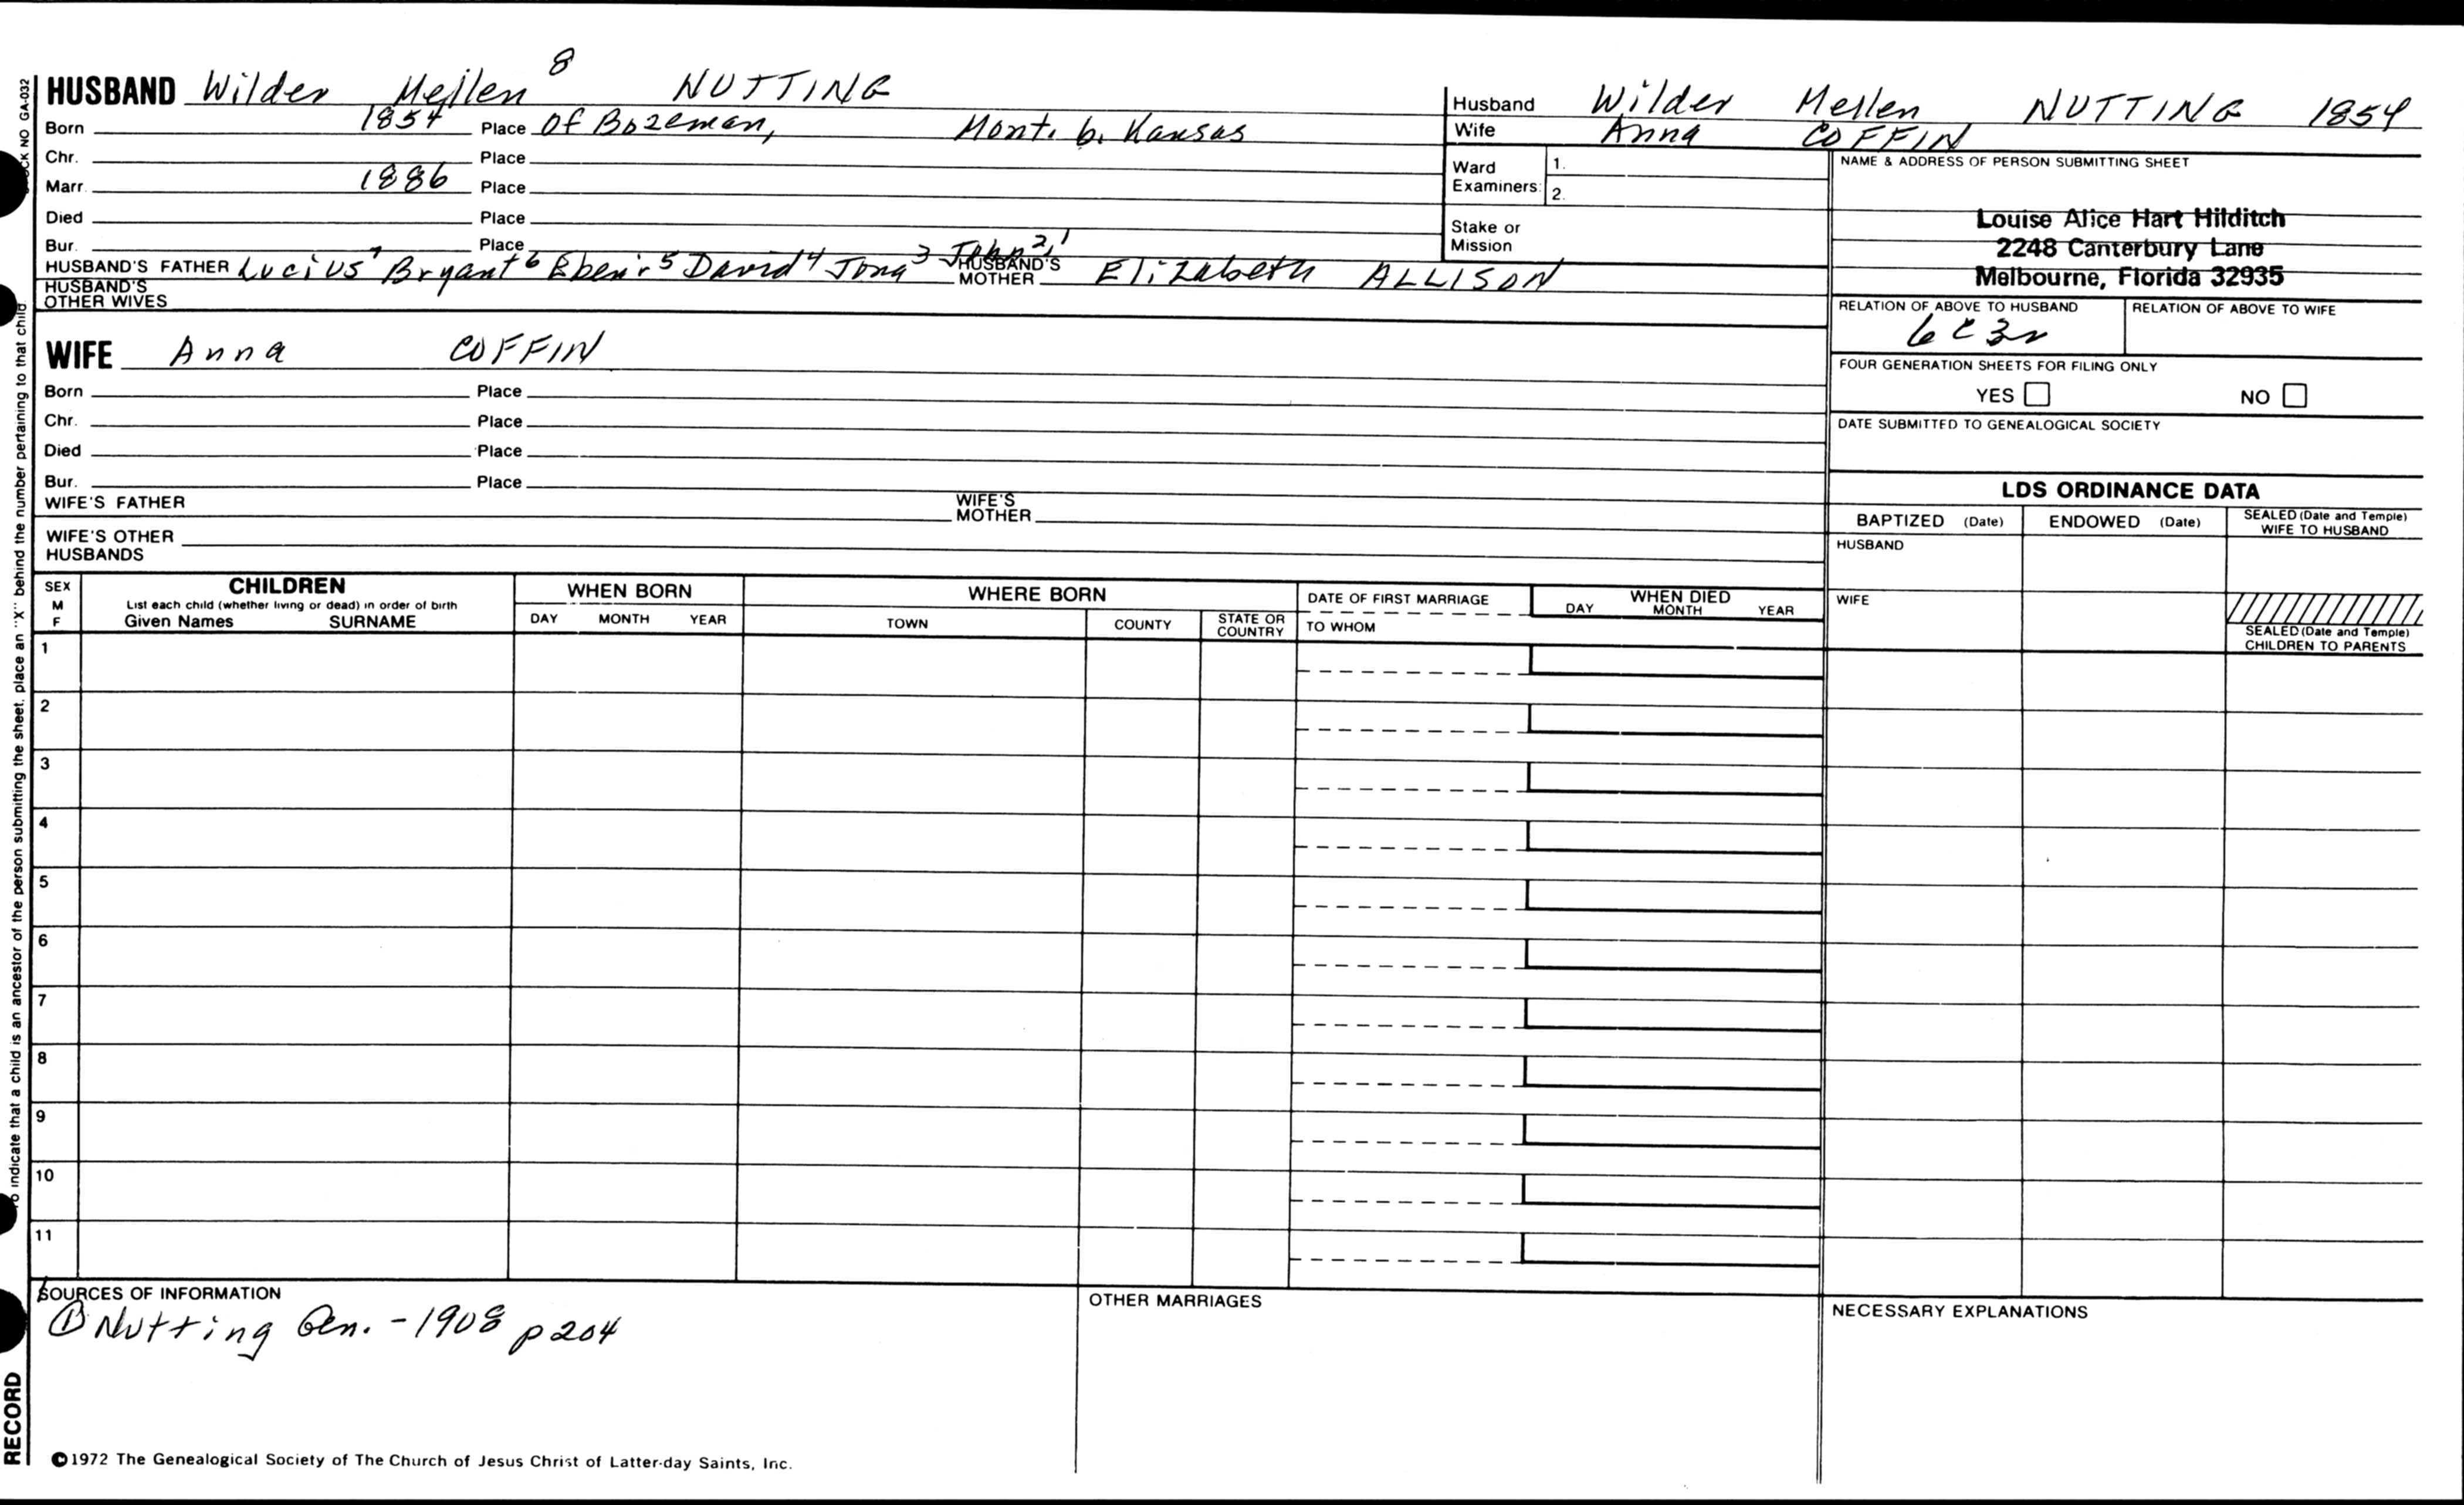 HUSBAND Wilder Mellen 8 NUTTING
Born 1854 Place Of Bozeman, Mont. b. Kansas
Chr. Place
Marr. 1886 Place
Died Place
Bur. Place
HUSBAND'S FATHER Lucius 7 Bryant 6 Eben'r 5 David 4 Jona 3 John 2, 1 HUSBAND'S MOTHER Elizabeth ALLISON
HUSBAND'S OTHER WIVES
Husband Wilder Mellen NUTTING 1854
Wife Anna COFFIN
Ward Examiners: 1.
2.
Stake or Mission
NAME & ADDRESS OF PERSON SUBMITTING SHEET
Louise Alice Hart Hilditch
2248 Canterbury Lane
Melbourne, Florida 32935
RELATION OF ABOVE TO HUSBAND RELATION OF ABOVE TO WIFE
6C3r
FOUR GENERATION SHEETS FOR FILING ONLY
YES NO
DATE SUBMITTED TO GENEALOGICAL SOCIETY
WIFE Anna COFFIN
Born Place
Chr. Place
Died Place
Bur. Place
WIFE'S FATHER WIFE'S MOTHER
WIFE'S OTHER HUSBANDS
LDS ORDINANCE DATA
BAPTIZED (Date) ENDOWED (Date) SEALED (Date and Temple) WIFE TO HUSBAND
HUSBAND
WIFE
SEALED (Date and Temple) CHILDREN TO PARENTS
SEX M F
CHILDREN
List each child (whether living or dead) in order of birth
Given Names SURNAME
WHEN BORN
DAY MONTH YEAR
WHERE BORN
TOWN COUNTY STATE OR COUNTRY
DATE OF FIRST MARRIAGE
TO WHOM
WHEN DIED
DAY MONTH YEAR
1
2
3
4
5
6
7
8
9
10
11
SOURCES OF INFORMATION
① Nutting Gen. - 1908 p 204
OTHER MARRIAGES
NECESSARY EXPLANATIONS
©1972 The Genealogical Society of The Church of Jesus Christ of Latter-day Saints, Inc.
NO GA-032
indicate that a child is an ancestor of the person submitting the sheet, place an "X" behind the number pertaining to that child.
RECORD